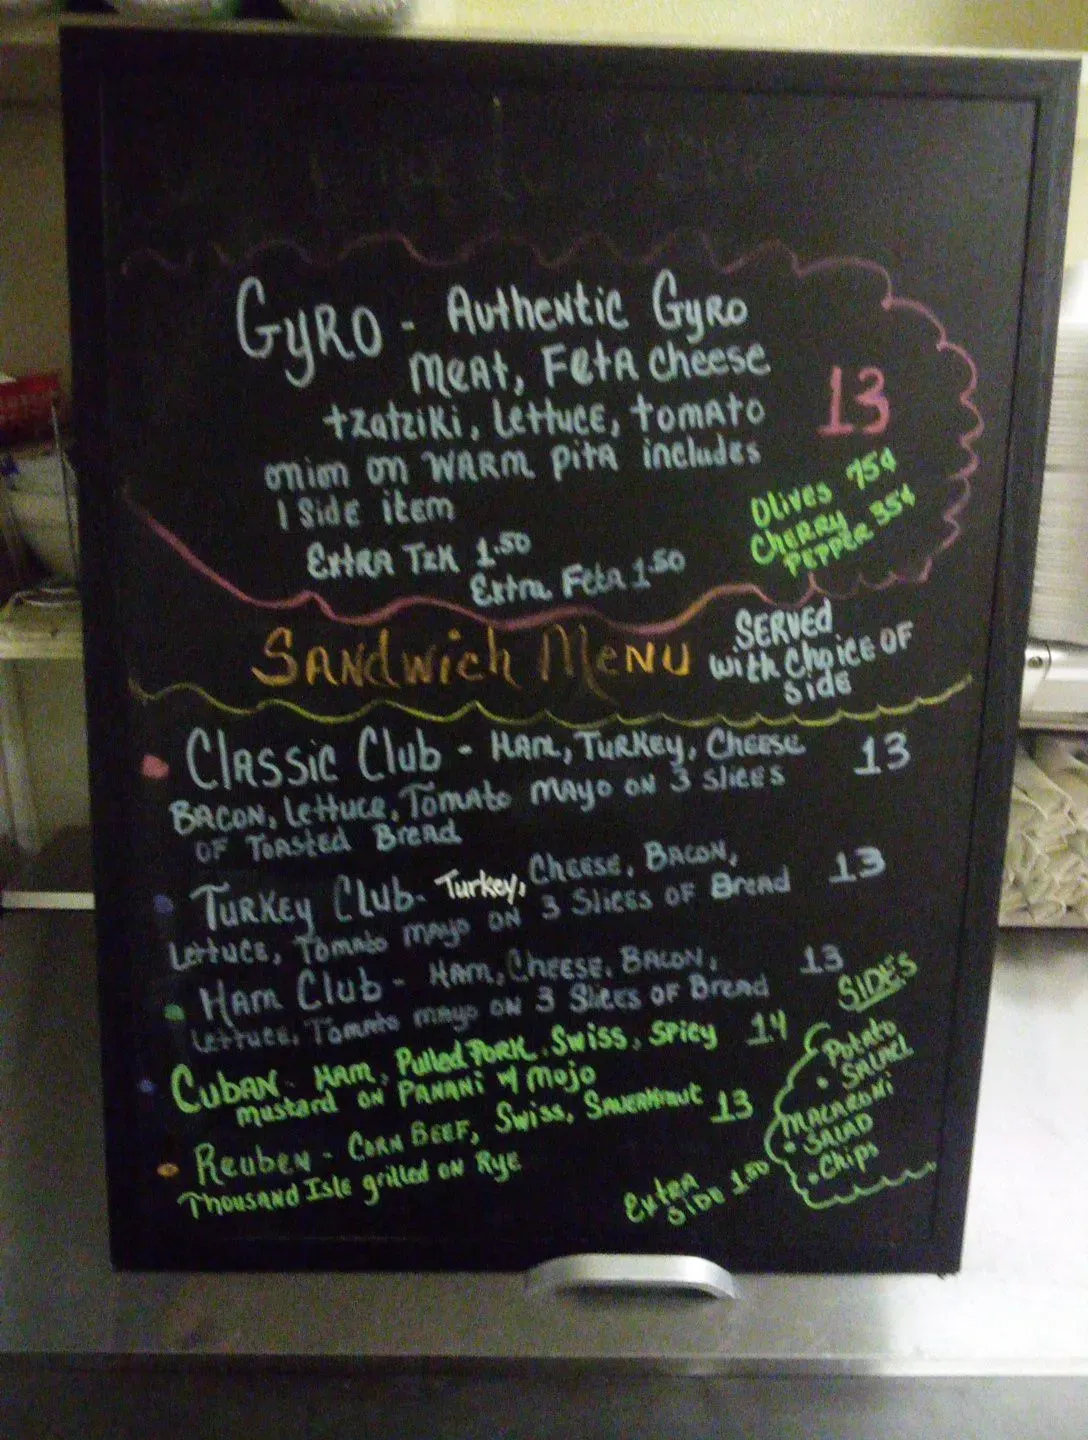 Gyro - Authentic Gyro
Meat, Feta Cheese
tzatziki, Lettuce, tomato
onion on warm pita includes
1 Side item
13
Olives 75¢
Cherry
Pepper 35¢
Extra Tzk 1.50
Extra Feta 1.50
Sandwich Menu
Served
with Choice of
Side
Classic Club - Ham, Turkey, Cheese 13
Bacon, Lettuce, Tomato mayo on 3 slices
of Toasted Bread
Turkey Club - Turkey, Cheese, Bacon, 13
Lettuce, Tomato mayo on 3 Slices of Bread
Ham Club - Ham, Cheese, Bacon, 13
Lettuce, Tomato mayo on 3 Slices of Bread
Cuban - Ham, Pulled Pork, Swiss, Spicy 14
mustard on Panani w/ Mojo
Reuben - Corn Beef, Swiss, Sauerkraut 13
Thousand Isle grilled on Rye
Sides
• Potato
Salad
• Macaroni
Salad
• Chips
Extra
Side 1.50